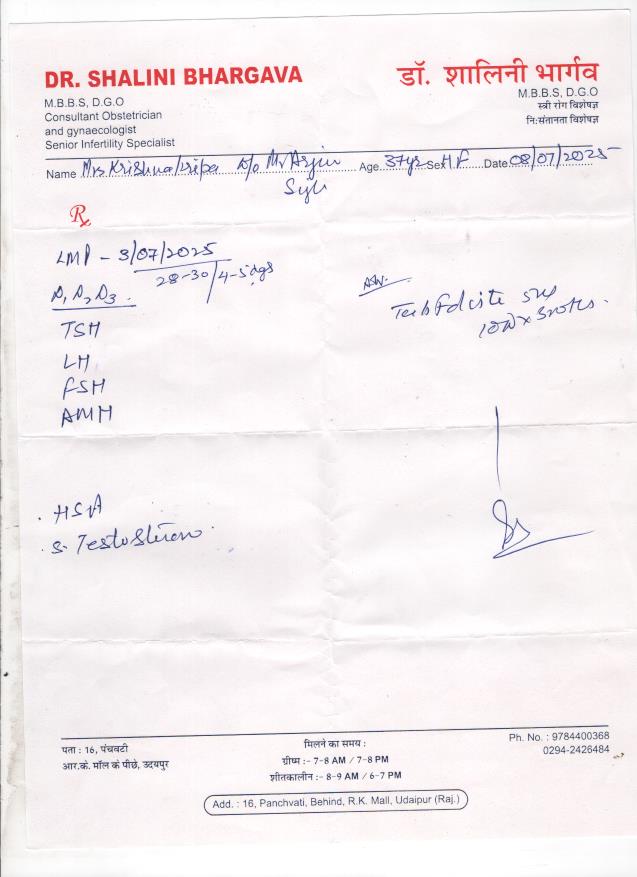 DR. SHALINI BHARGAVA
M.B.B.S, D.G.O
Consultant Obstetrician
and gynaecologist
Senior Infertility Specialist
डॉ. शालिनी भार्गव
M.B.B.S, D.G.O
स्त्री रोग विशेषज्ञ
नि:संतानता विशेषज्ञ
Name Mrs Krishna Age 37yr Sex F Date 08/07/2025
Rx
LMP - 3/07/2025
28-30/4-5 dys
TSH
LH
FSH
AMH
HSA
S. Testosteron
Tab
पता : 16, पंचवटी
आर.के. मॉल के पीछे, उदयपुर
मिलने का समय :
ग्रीष्म :- 7-8 AM / 7-8 PM
शीतकालीन :- 8-9 AM / 6-7 PM
Ph. No. : 9784400368
0294-2426484
Add. : 16, Panchvati, Behind, R.K. Mall, Udaipur (Raj.)